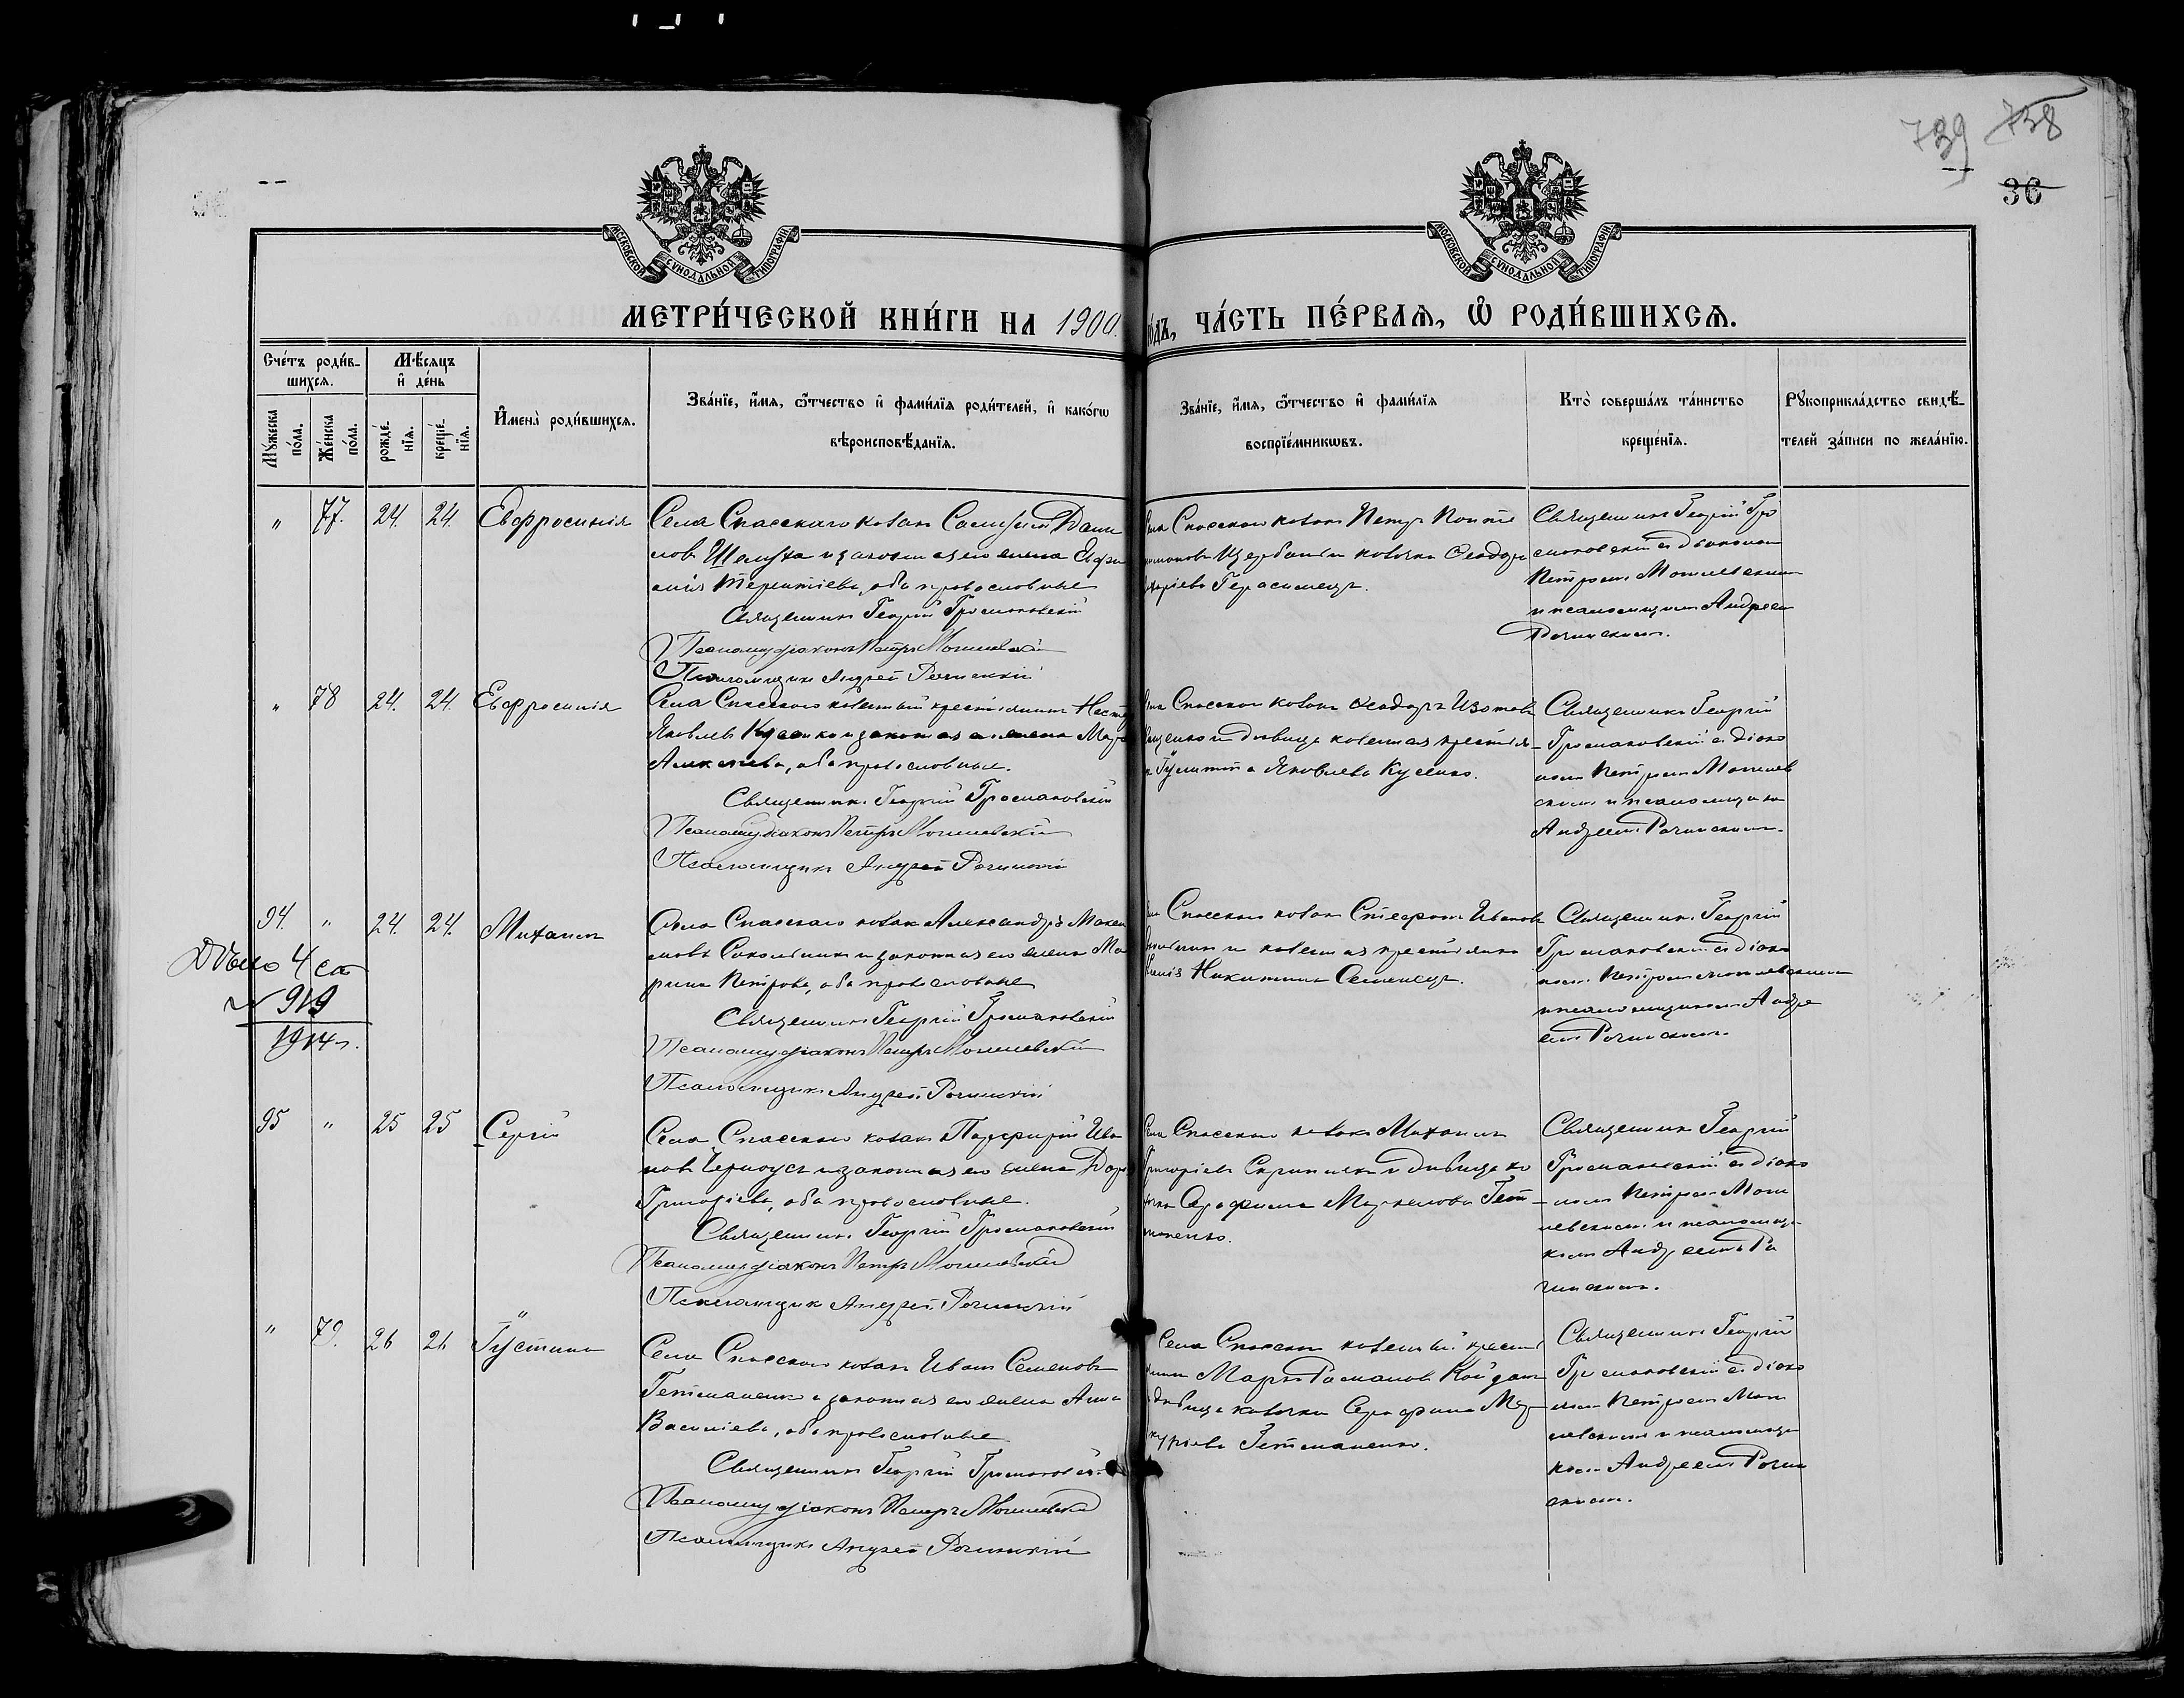 739 738
36
МОСКОВСКОЙ СѴНОДАЛЬНОЙ ТИПОГРАФІИ
МОСКОВСКОЙ СѴНОДАЛЬНОЙ ТИПОГРАФІИ
МЕТРИ́ЧЕСКОЙ КНИ́ГИ НА 1900. ГО́ДЪ, ЧА́СТЬ ПЕ́РВАЯ, Ѡ҆ РОДИ́ВШИХСЯ.
Сче́тъ роди́в-
шихся.
Мꙋ́жеска по́ла.
Же́нска по́ла.
Мѣ́сяцъ и҆ де́нь
рожде́нїя.
креще́нїя.
И҆мена̀ роди́вшихся.
Зва́нїе, и҆́мя, ѻ҆́тчество и҆ фами́лїя роди́телей, и҆ како́гѡ
вѣроисповѣ́данїя.
Зва́нїе, и҆́мя, ѻ҆́тчество и҆ фами́лїя
воспрїе́мникѡвъ.
Кто̀ соверша́лъ та́инство
креще́нїя.
Рꙋкоприкла́дство свидѣ́-
телей за́писи по жела́нїю.
" 77. 24. 24. Евфросинія
Села Спасскаго козакъ Дани
ловъ Шелуха и законная его жена Евфи
мія Терентіева, оба православные
Священникъ Георгій Громаковскій
Псаломщ діаконъ Петръ Могилевскій
Псаломщикъ Андрей Рочинскій
Села Спасскаго козакъ Петръ
Щербакъ и козачка Ѳеодора
Герасимецъ.
Священникъ Георгій Гро
маковскій съ діакономъ
Петромъ Могилевскимъ
и псаломщикомъ Андреемъ
Рочинскимъ.
" 78 24. 24. Евфросинія
Села Спасскаго казенный крестьянинъ Несте
Яковлевъ Кусенко и законная его жена Мар
Алексѣева, оба православные.
Священникъ Георгій Громаковскій
Псаломщ діаконъ Петръ Могилевскій
Псаломщикъ Андрей Рочинскій
Села Спасскаго козакъ Ѳеодоръ Изотовъ
и дѣвица казенная крестьян-
ка Іулитта Яковлева Кусенко.
Священникъ Георгій
Громаковскій съ діако
номъ Петромъ Могилев
скимъ и псаломщикомъ
Андреемъ Рочинскимъ.
94. " 24. 24. Михаилъ
Дѣло 4 ст
№ 919
1914 г.
Села Спасскаго козакъ Александръ Макси
мовъ Сокольникъ и законная его жена Ма
рина Петрова, оба православные
Священникъ Георгій Громаковскій
Псаломщ діаконъ Петръ Могилевскій
Псаломщикъ Андрей Рочинскій
Села Спасскаго козакъ Стефанъ Ивановъ
и казенная крестьянка
Никитина Семенецъ.
Священникъ Георгій
Громаковскій съ діако
номъ Петромъ Могилевскимъ
и псаломщикомъ Андре
емъ Рочинскимъ.
95 " 25 25 Сергій
Села Спасскаго козакъ Порфирій Ива
новъ Черноусъ и законная его жена Дар
Григоріева, оба православные.
Священникъ Георгій Громаковскій
Псаломщ діаконъ Петръ Могилевскій
Псаломщикъ Андрей Рочинскій
Села Спасскаго козакъ Михаилъ
Григоріевъ и дѣвица ко
зачка Серафима Гет-
маненко.
Священникъ Георгій
Громаковскій съ діако
номъ Петромъ Моги
левскимъ и псаломщи
комъ Андреемъ Ро
чинскимъ.
" 79. 26 26 Іустина
Села Спасскаго козакъ Иванъ Семеновъ
Гетманенко и законная его жена Анна
Василіева, оба православные
Священникъ Георгій Громаковскій
Псаломщ діаконъ Петръ Могилевскій
Псаломщикъ Андрей Рочинскій
Села Спасскаго казенный крестья
нинъ Маркъ Романовъ
и дѣвица козачка Серафима Мер
куріева Гетманенко.
Священникъ Георгій
Громаковскій съ діако
номъ Петромъ Моги
левскимъ и псаломщи
комъ Андреемъ Рочин
скимъ.